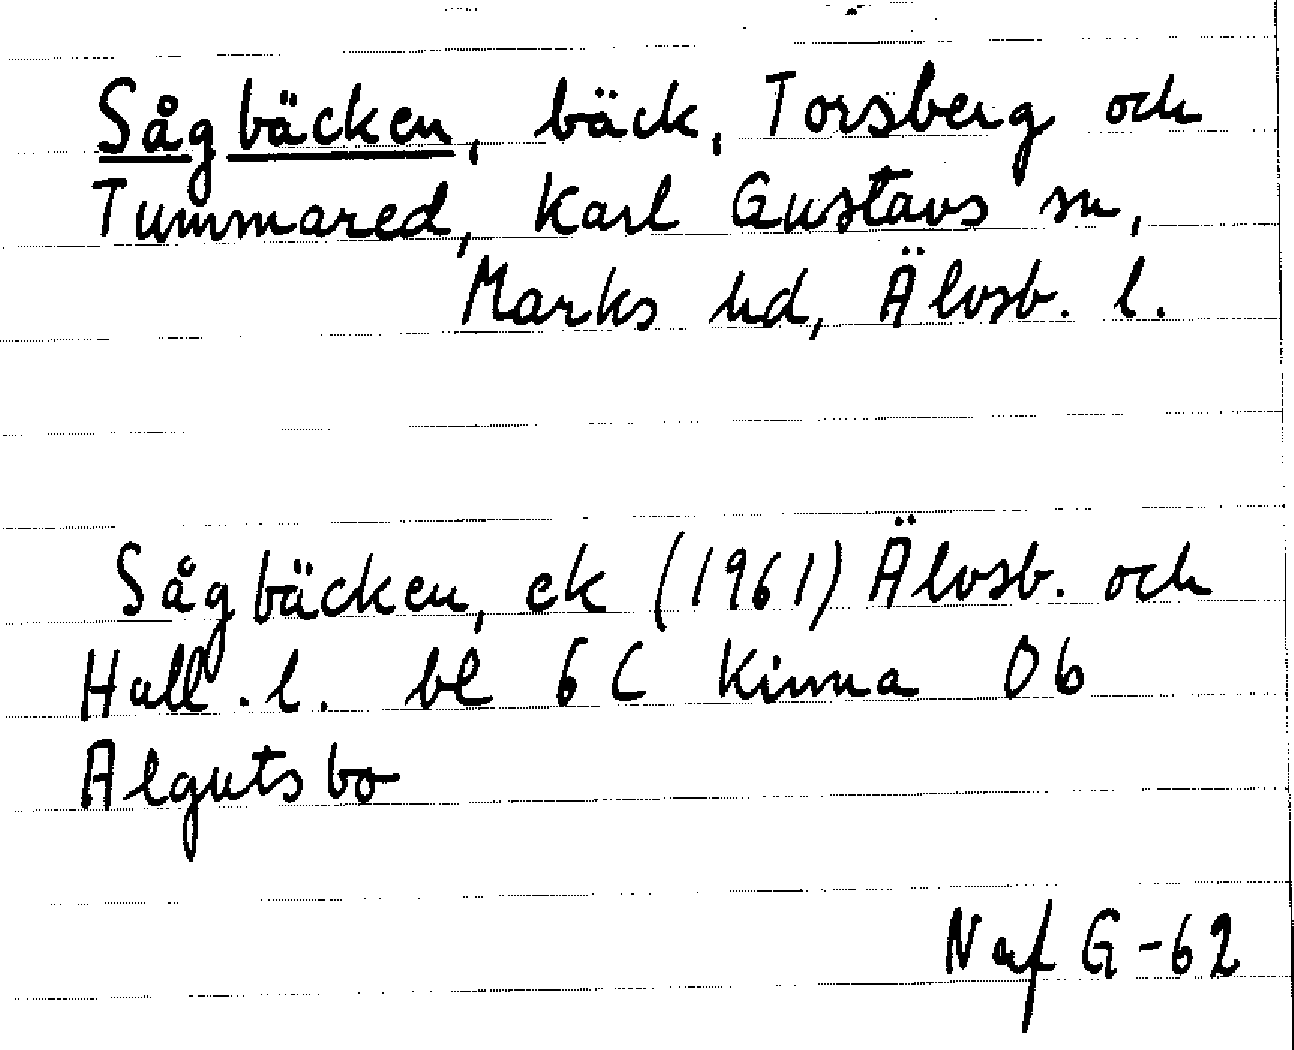 Sågbäcken, bäck, Torsberg och
Tummared, Karl Gustavs sn,
Marks hd, Älvsb. l.
Sågbäcken, ek (1961) Älvsb. och
Hall. l. bl 6 C Kinna 0b
Algutsbo
Naf G-62